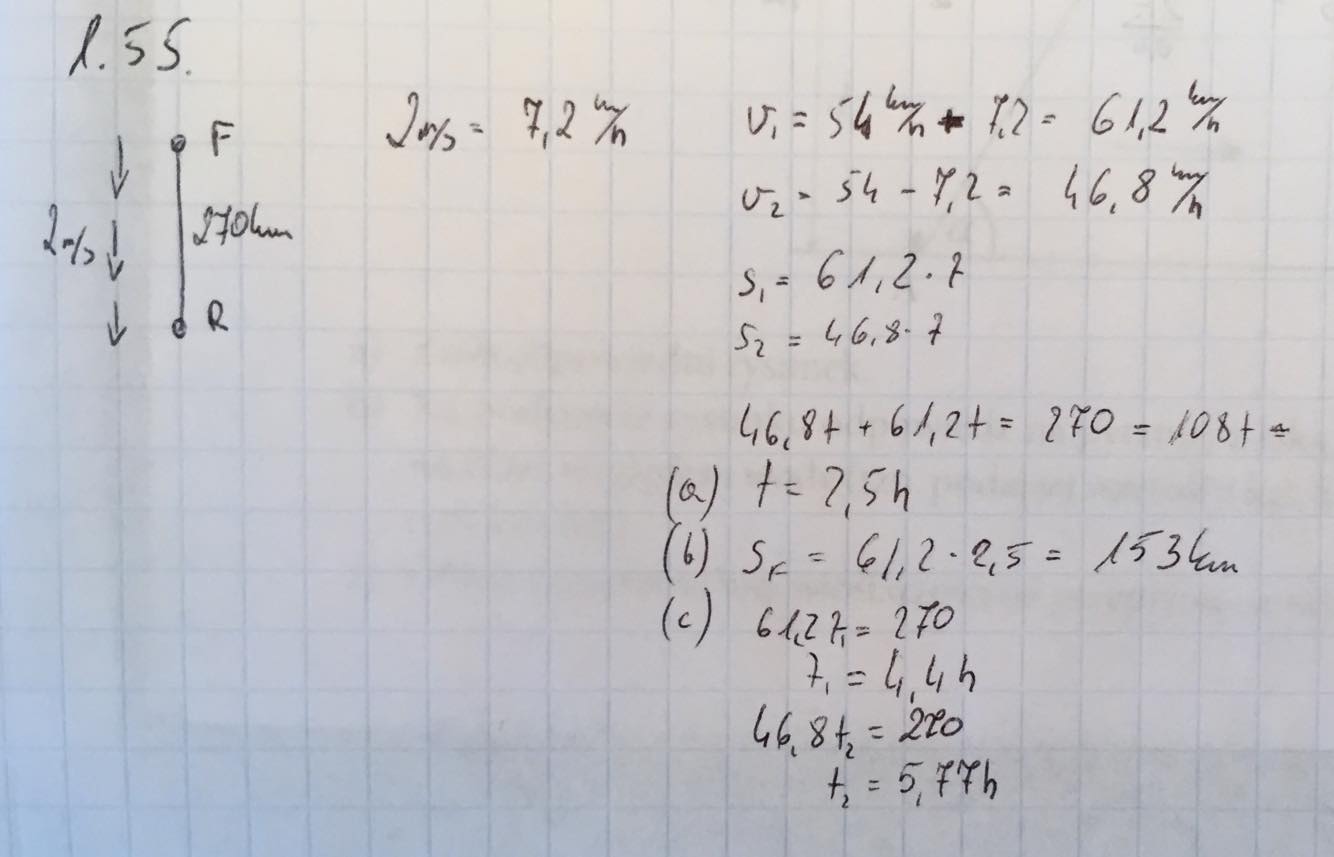 1.55.
F
2m/s
270km
R
2m/s = 7,2 km/h
v₁ = 54 km/h + 7,2 = 61,2 km/h
v₂ = 54 - 7,2 = 46,8 km/h
s₁ = 61,2 · t
s₂ = 46,8 · t
46,8t + 61,2t = 270 = 108t =
(a) t = 2,5h
(b) S_F = 61,2 · 2,5 = 153km
(c) 61,2t₁ = 270
t₁ = 4,4h
46,8t₂ = 270
t₂ = 5,77h